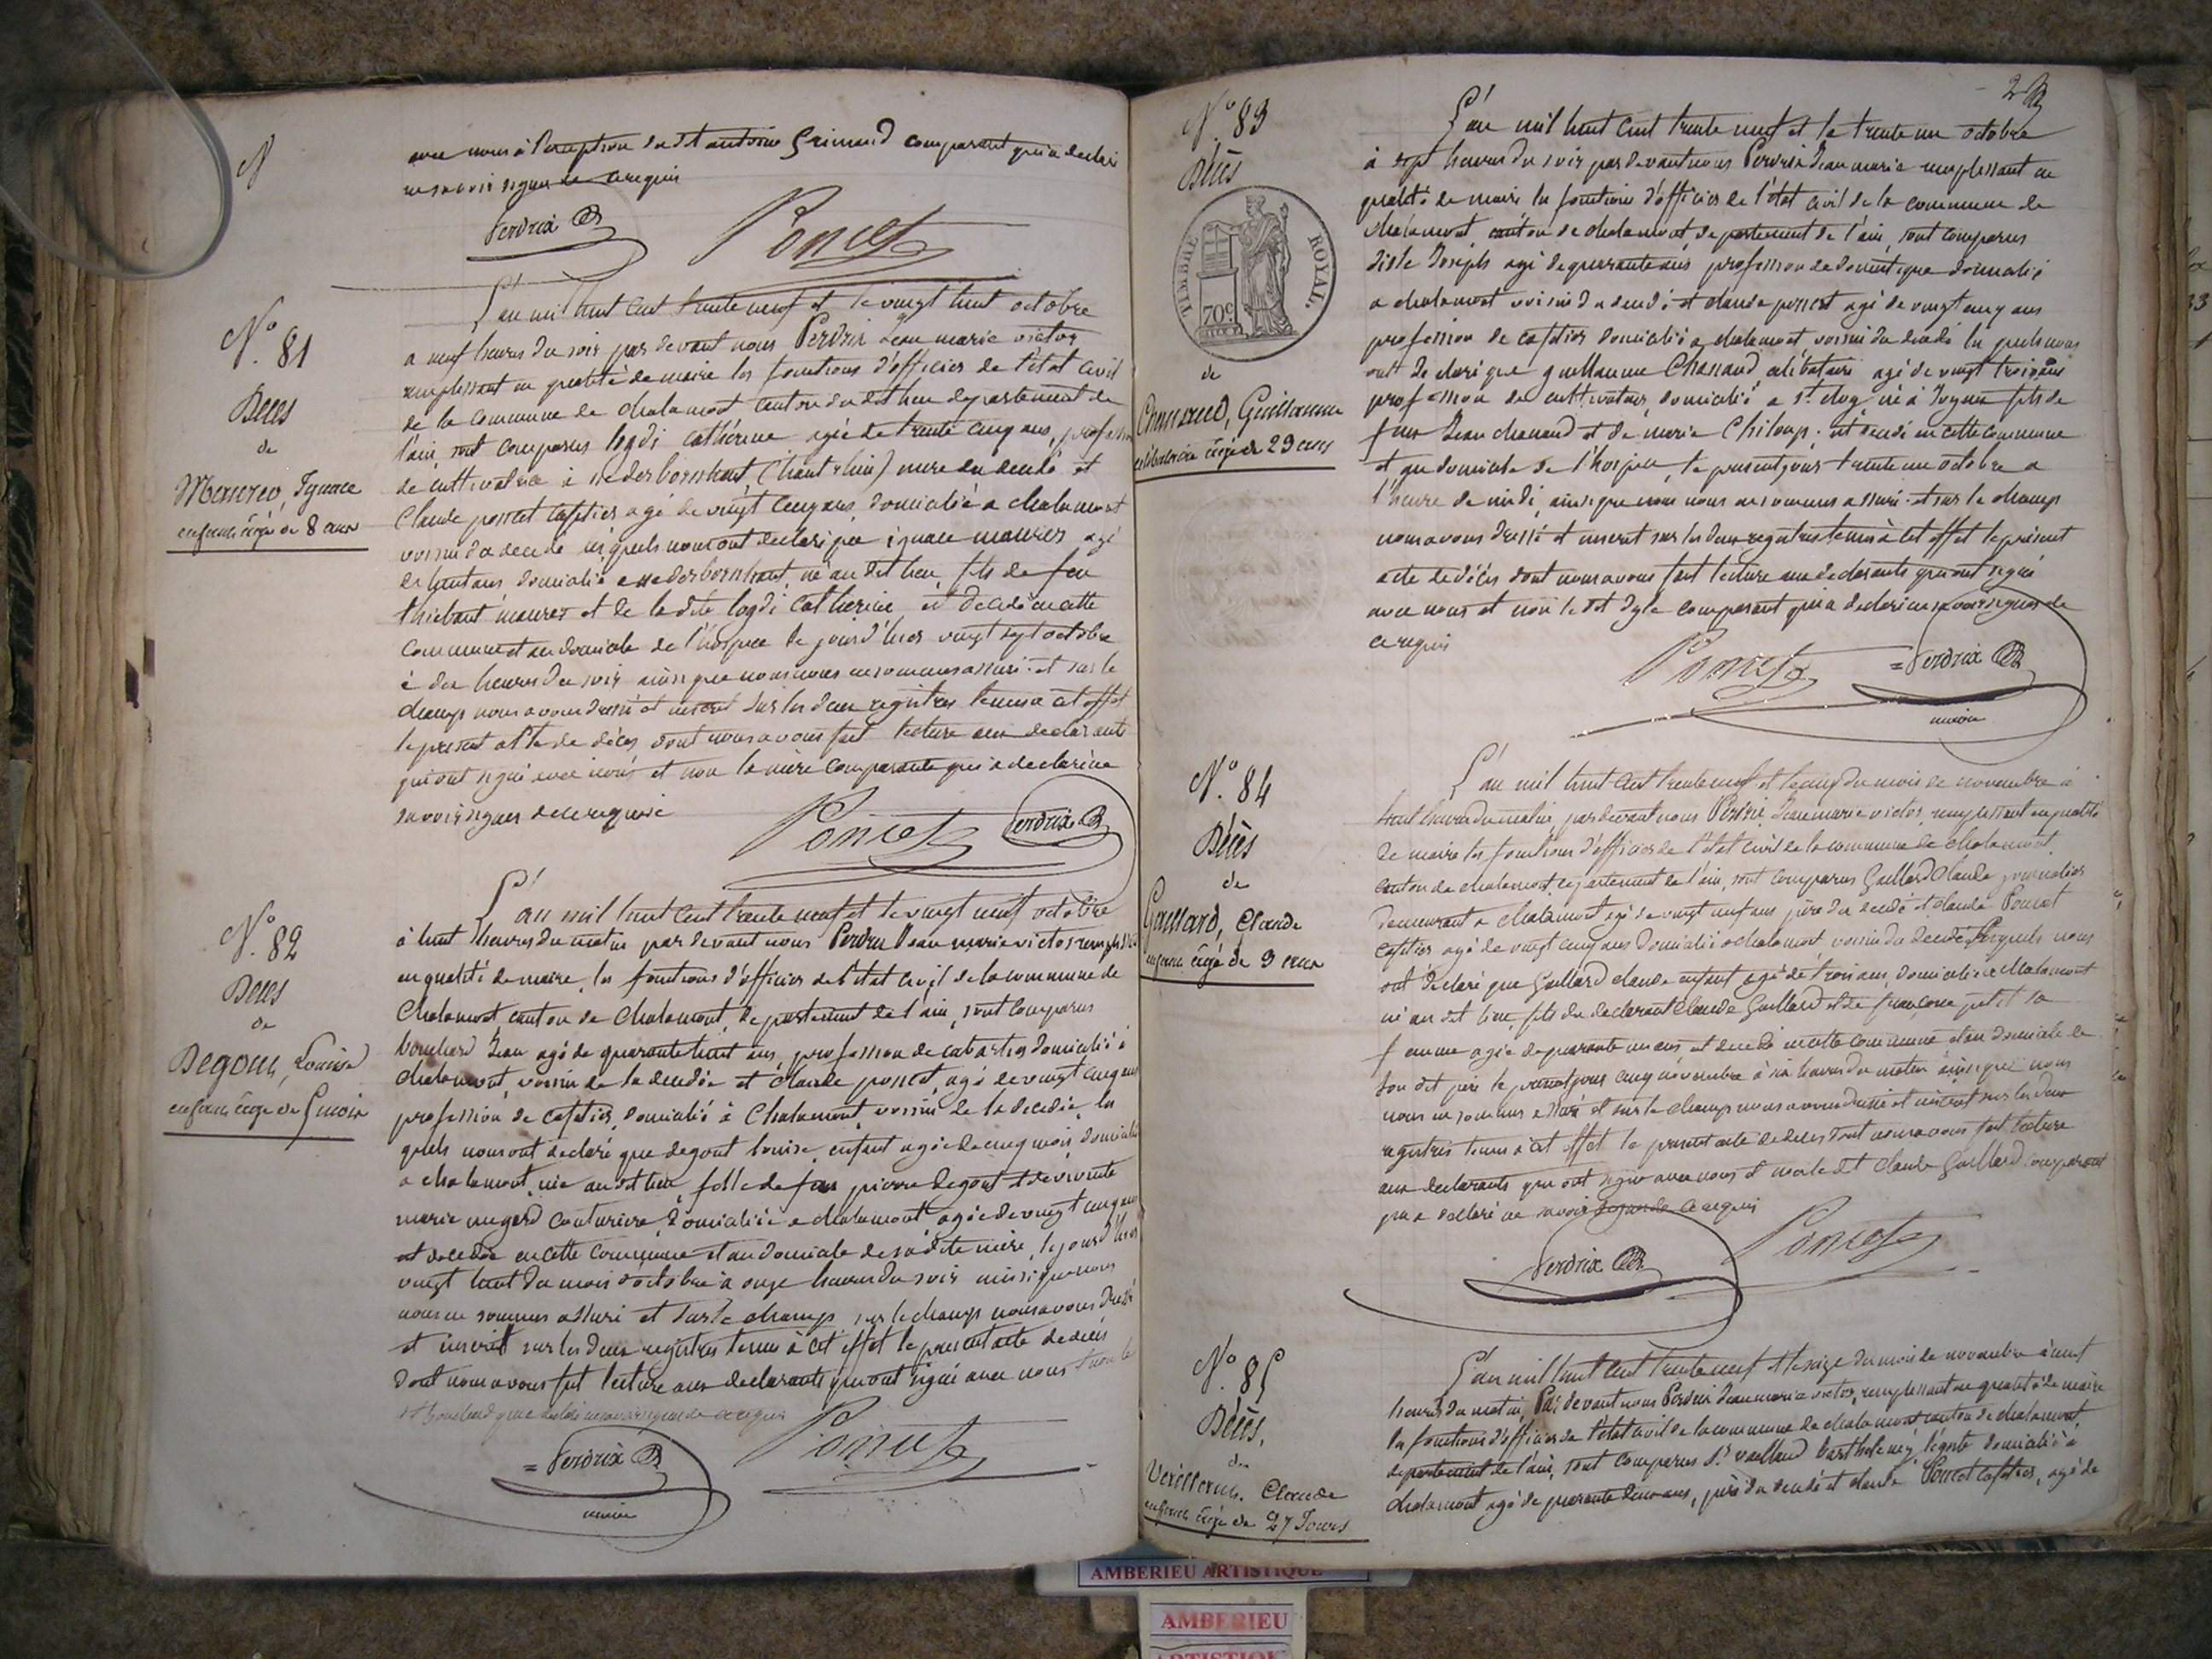 N
avec nous à l'exception du dt antoine Grimaud comparant qui a declaré
ne savoir signer de ce requis
Perdrix
Poncet
N° 81
Deces
de
Maurer, Ignace
enfant âgé de 8 ans
L'an mil huit cent trente neuf et le vingt huit octobre
a neuf heures du soir par devant nous Perdrix Jean marie victor
remplissant en qualité de maire les fonctions d'officier de l'état civil
de la commune de chalamont canton du dit lieu departement de
l'ain, sont comparus logdi cathérine agée de trente cinq ans, profession
de cultivatrice à (haut rhin) mere du decedé et
Claude poncet cafetier agé de vingt cinq ans domicilié a chalamont
voisin du decedé lesquels nous ont declaré que ignace maurer agé
de huit ans domicilié a né au dit lieu, fils de feu
thiebaut maurer et de la dite logdi catherine est decedé en cette
commune et au domicile de l'hospice le jour d'hier vingt sept octobre
à dix heures du soir ainsi que nous nous en sommes assuré. et sur le
champ nous avons dressé et inscrit sur les deux registres tenus a cet effet
le present acte de décès dont nous avons fait lecture aux declarants
qui ont signé avec nous et non la mère comparante qui a declaré ne
savoir signer de ce requise
Poncet Perdrix
N° 82
Deces
de
Degout, Louise
enfant âgée de 5 mois
L'an mil huit cent trente neuf et le vingt neuf octobre
à huit heures du matin par devant nous Perdrix Jean marie victor
en qualité de maire, les fonctions d'officier de l'état civil de la commune de
Chalamont, canton de Chalamont, departement de l'ain, sont comparus
bouchard Jean agé de quarante huit ans, profession de domicilié à
chalamont, voisin de la decedée et Claude poncet, agé de vingt cinq ans
profession de cafetier, domicilié à Chalamont, voisin de la decedée, les
quels nous ont declaré que degout louise, enfant agée de cinq mois, domiciliée
a chalamont, née au dit lieu, fille de feu pierre degout et de vivante
marie couturiere, domiciliée a chalamont agée de vingt cinq ans
est decedée en cette commune et au domicile de sa dite mère, le jour d'hier
vingt huit du mois d'octobre à onze heures du soir ainsi que nous
nous en sommes assuré et sur le champ sur le champ nous avons dressé
et inscrit sur les deux registres tenus à cet effet le present acte de décès
dont nous avons fait lecture aux declarants qui ont signé avec nous et non le
dt bouchard qui a declaré ne savoir signer de ce requis
= Perdrix
maire
Poncet
N° 83
Décès
TIMBRE ROYAL
70c
de
Chanaud, Guillaume
célibataire âgé de 23 ans
L'an mil huit cent trente neuf et le trente un octobre
à sept heures du soir par devant nous Perdrix Jean marie remplissant en
qualité de maire les fonctions d'officier de l'état civil de la commune de
chalamont canton de chalamont, departement de l'ain, sont comparus
Joseph agé de quarante ans profession de domestique domicilié
a chalamont voisin du decedé et claude poncet agé de vingt cinq ans
profession de cafetier domicilié a chalamont voisin du decedé les quels nous
ont declaré que guillaume Chanaud célibataire agé de vingt trois ans
profession de cultivateur, domicilié a St. éloy né à Joyeux fils de
feus Jean chanaud et de marie Chiloup. est decedé en cette commune
et au domicile de l'hospice, le present jour trente un octobre a
l'heure de midi, ainsi que nous nous en sommes assuré. et sur le champ
nous avons dressé et inscrit sur les deux registres tenus à cet effet le présent
acte de décès dont nous avons fait lecture aux declarants qui ont signé
avec nous et non le dit comparant qui a declaré ne savoir signer de
ce requis
Poncet = Perdrix
maire
N° 84
Décès
de
Gaillard, Claude
enfant âgé de 3 ans
L'an mil huit cent trente neuf et le cinq du mois de novembre à
huit heures du matin, par devant nous Perdrix Jean marie victor, remplissant en qualité
de maire les fonctions d'officier de l'état civil de la commune de chalamont
canton de chalamont, departement de l'ain, sont comparus Gaillard Claude journalier
demeurant a chalamont agé de vingt neuf ans père du decedé et claude Poncet
cafetier agé de vingt cinq ans domicilié a chalamont voisin du decedé, lesquels nous
ont declaré que Gaillard claude enfant agé de trois ans, domicilié a chalamont
né au dit lieu, fils du declarant Claude Gaillard et de françoise petit sa
femme agée de quarante un ans est decedé en cette commune et au domicile de
son dit père le present jour cinq novembre à six heures du matin ainsi que nous
nous en sommes assuré et sur le champ nous avons dressé et inscrit sur les deux
registres tenus à cet effet le present acte de deces dont nous avons fait lecture
aux declarants qui ont signé avec nous et non le dt claude Gaillard comparant
qui a declaré ne savoir signer de ce requis
Perdrix Poncet
N° 85
Décès,
de
Claude
enfant âgé de 27 Jours
L'an mil huit cent trente neuf et le seize du mois de novembre à neuf
heures du matin, Par devant nous Perdrix Jean marie victor, remplissant en qualité de maire
les fonctions d'officier de l'état civil de la commune de chalamont canton de chalamont,
departement de l'ain, sont comparus Sr. barthelemy, domicilié à
chalamont agé de quarante deux ans, père du decedé et claude Poncet cafetier, agé de
AMBERIEU ARTISTIQUE
AMBERIEU
ARTISTIQUE